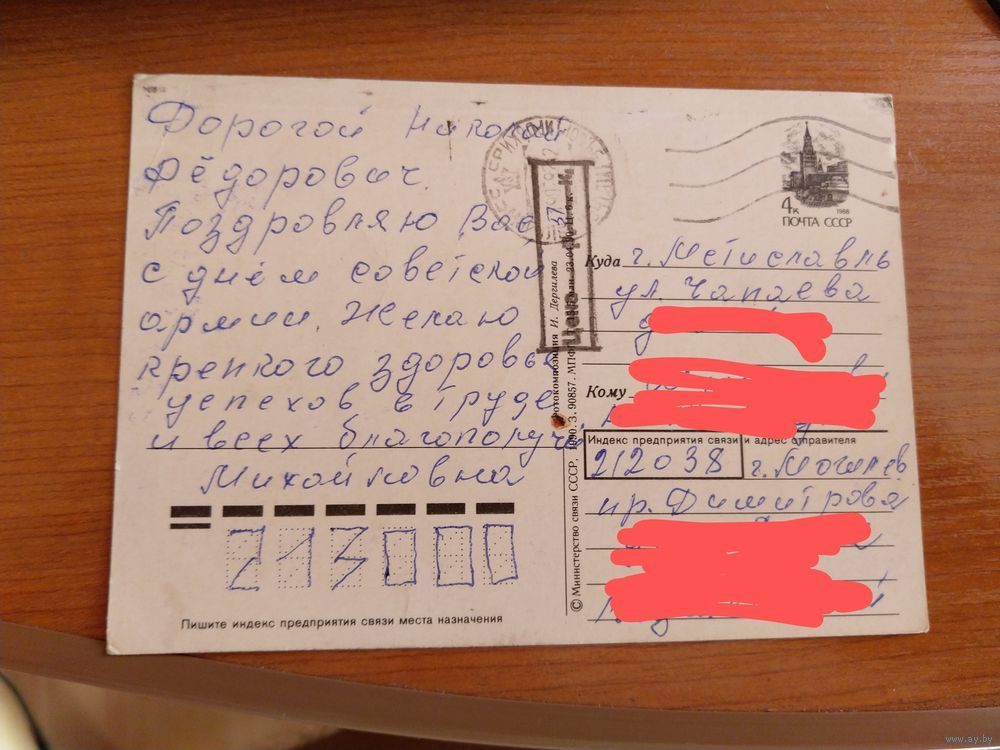 Дорогой Николай
Фёдорович.
Поздровляю Вас
с днём советской
армии. Желаю
крепкого здоровья
успехов в труде
и всех благополуч
Михайловна
213000
Пишите индекс предприятия связи места назначения
4к 1988
ПОЧТА СССР
Куда г. Мстиславль
ул. Чапаева
Кому
Индекс предприятия связи и адрес отправителя
212038 г. Могилев
пр. Димитрова
© Министерство связи СССР, 1990. З. 90857. МПФГ
Фотокомпозиция И. Дергилева
Цена 37 к.
www.ay.by